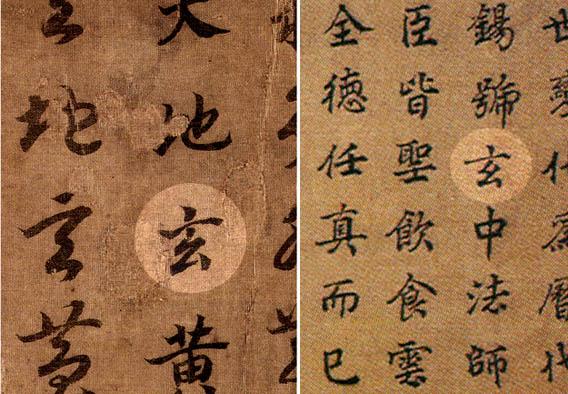 天地玄黃
地玄黃
錫號玄中法師
臣皆聖飲食雲
全德任真而已